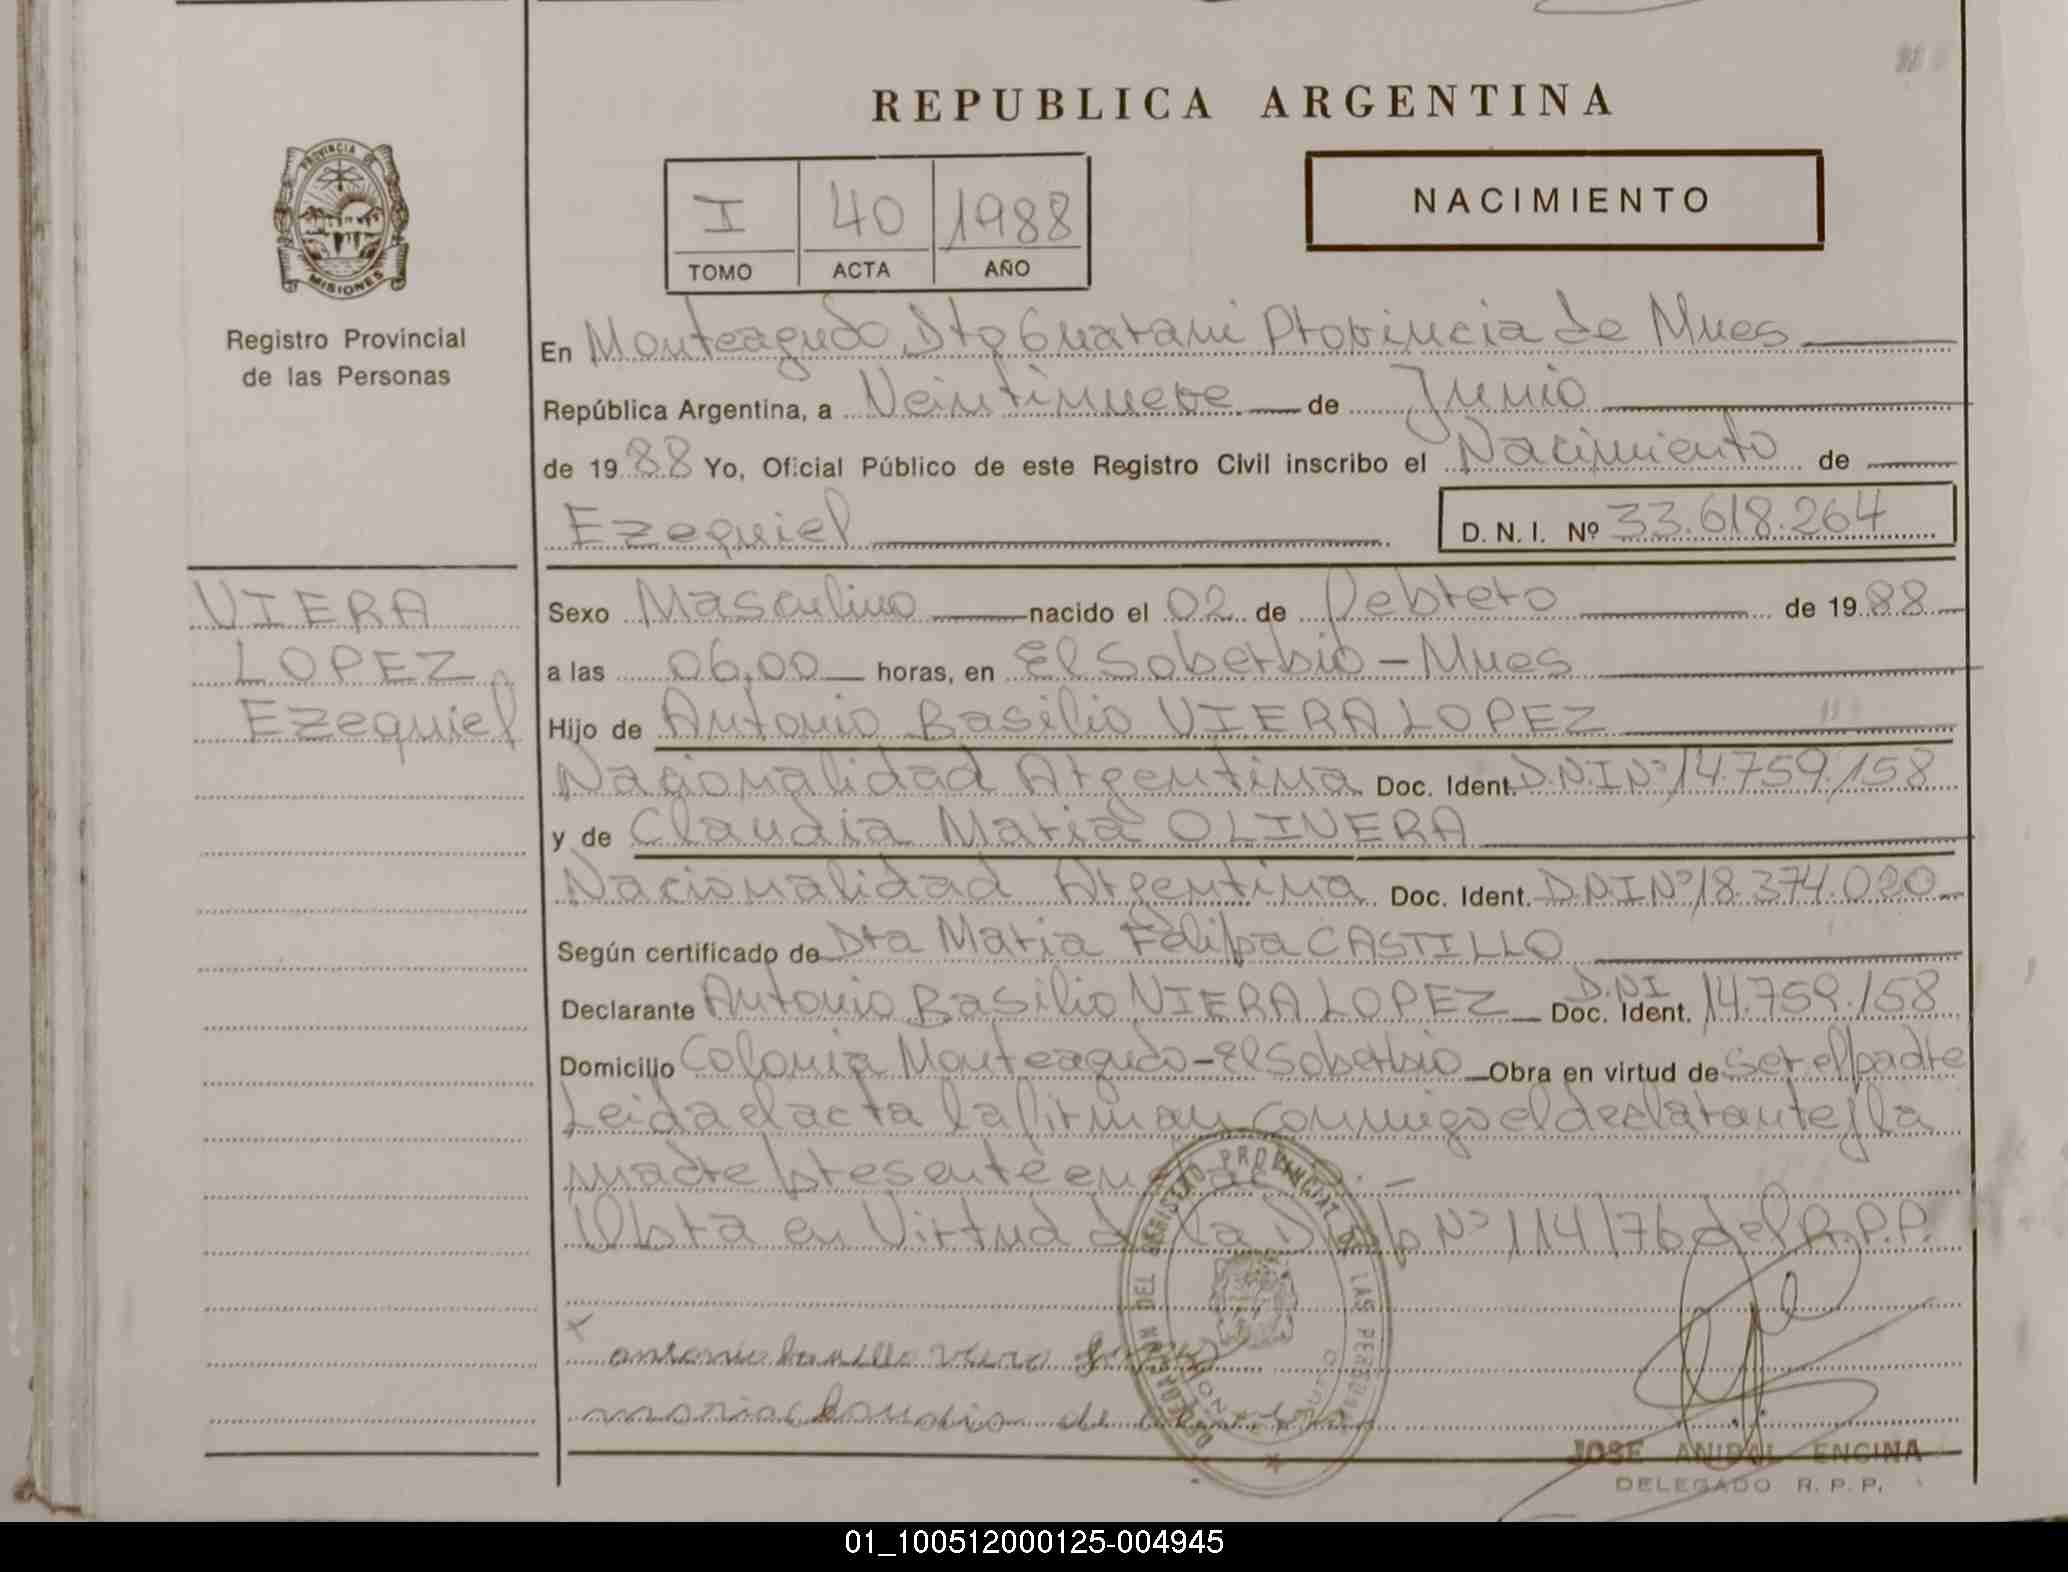 REPUBLICA ARGENTINA
NACIMIENTO
I 40 1988
TOMO ACTA AÑO
PROVINCIA DE
MISIONES
Registro Provincial
de las Personas
En Monteagudo Dto Guarani Provincia de Mnes
República Argentina, a Veintinueve de Junio
de 1988 Yo, Oficial Público de este Registro Civil inscribo el Nacimiento de
Ezequiel D. N. I. Nº 33.618.264
VIERA
LOPEZ
Ezequiel
Sexo Masculino nacido el 02 de Febrero de 1988
a las 06,00 horas, en El Soberbio - Mnes
Hijo de Antonio Basilio VIERA LOPEZ
Nacionalidad Argentina Doc. Ident. D.N.I Nº 14.759.158
y de Claudia Maria OLIVERA
Nacionalidad Argentina Doc. Ident. D.N.I Nº 18.374.020
Según certificado de Dra Maria Felipa CASTILLO
Declarante Antonio Basilio VIERA LOPEZ Doc. Ident. D.N.I 14.759.158
Domicilio Colonia Monteagudo - El Soberbio Obra en virtud de ser el padre
Leida el acta la firman conmigo el declarante y la
madre presente en
Obra en Virtud de la Nº 114/76 del R.P.P.
REGISTRO PROVINCIAL DE LAS PERSONAS
JOSE ANIBAL ENCINA
DELEGADO R. P. P.
01_100512000125-004945